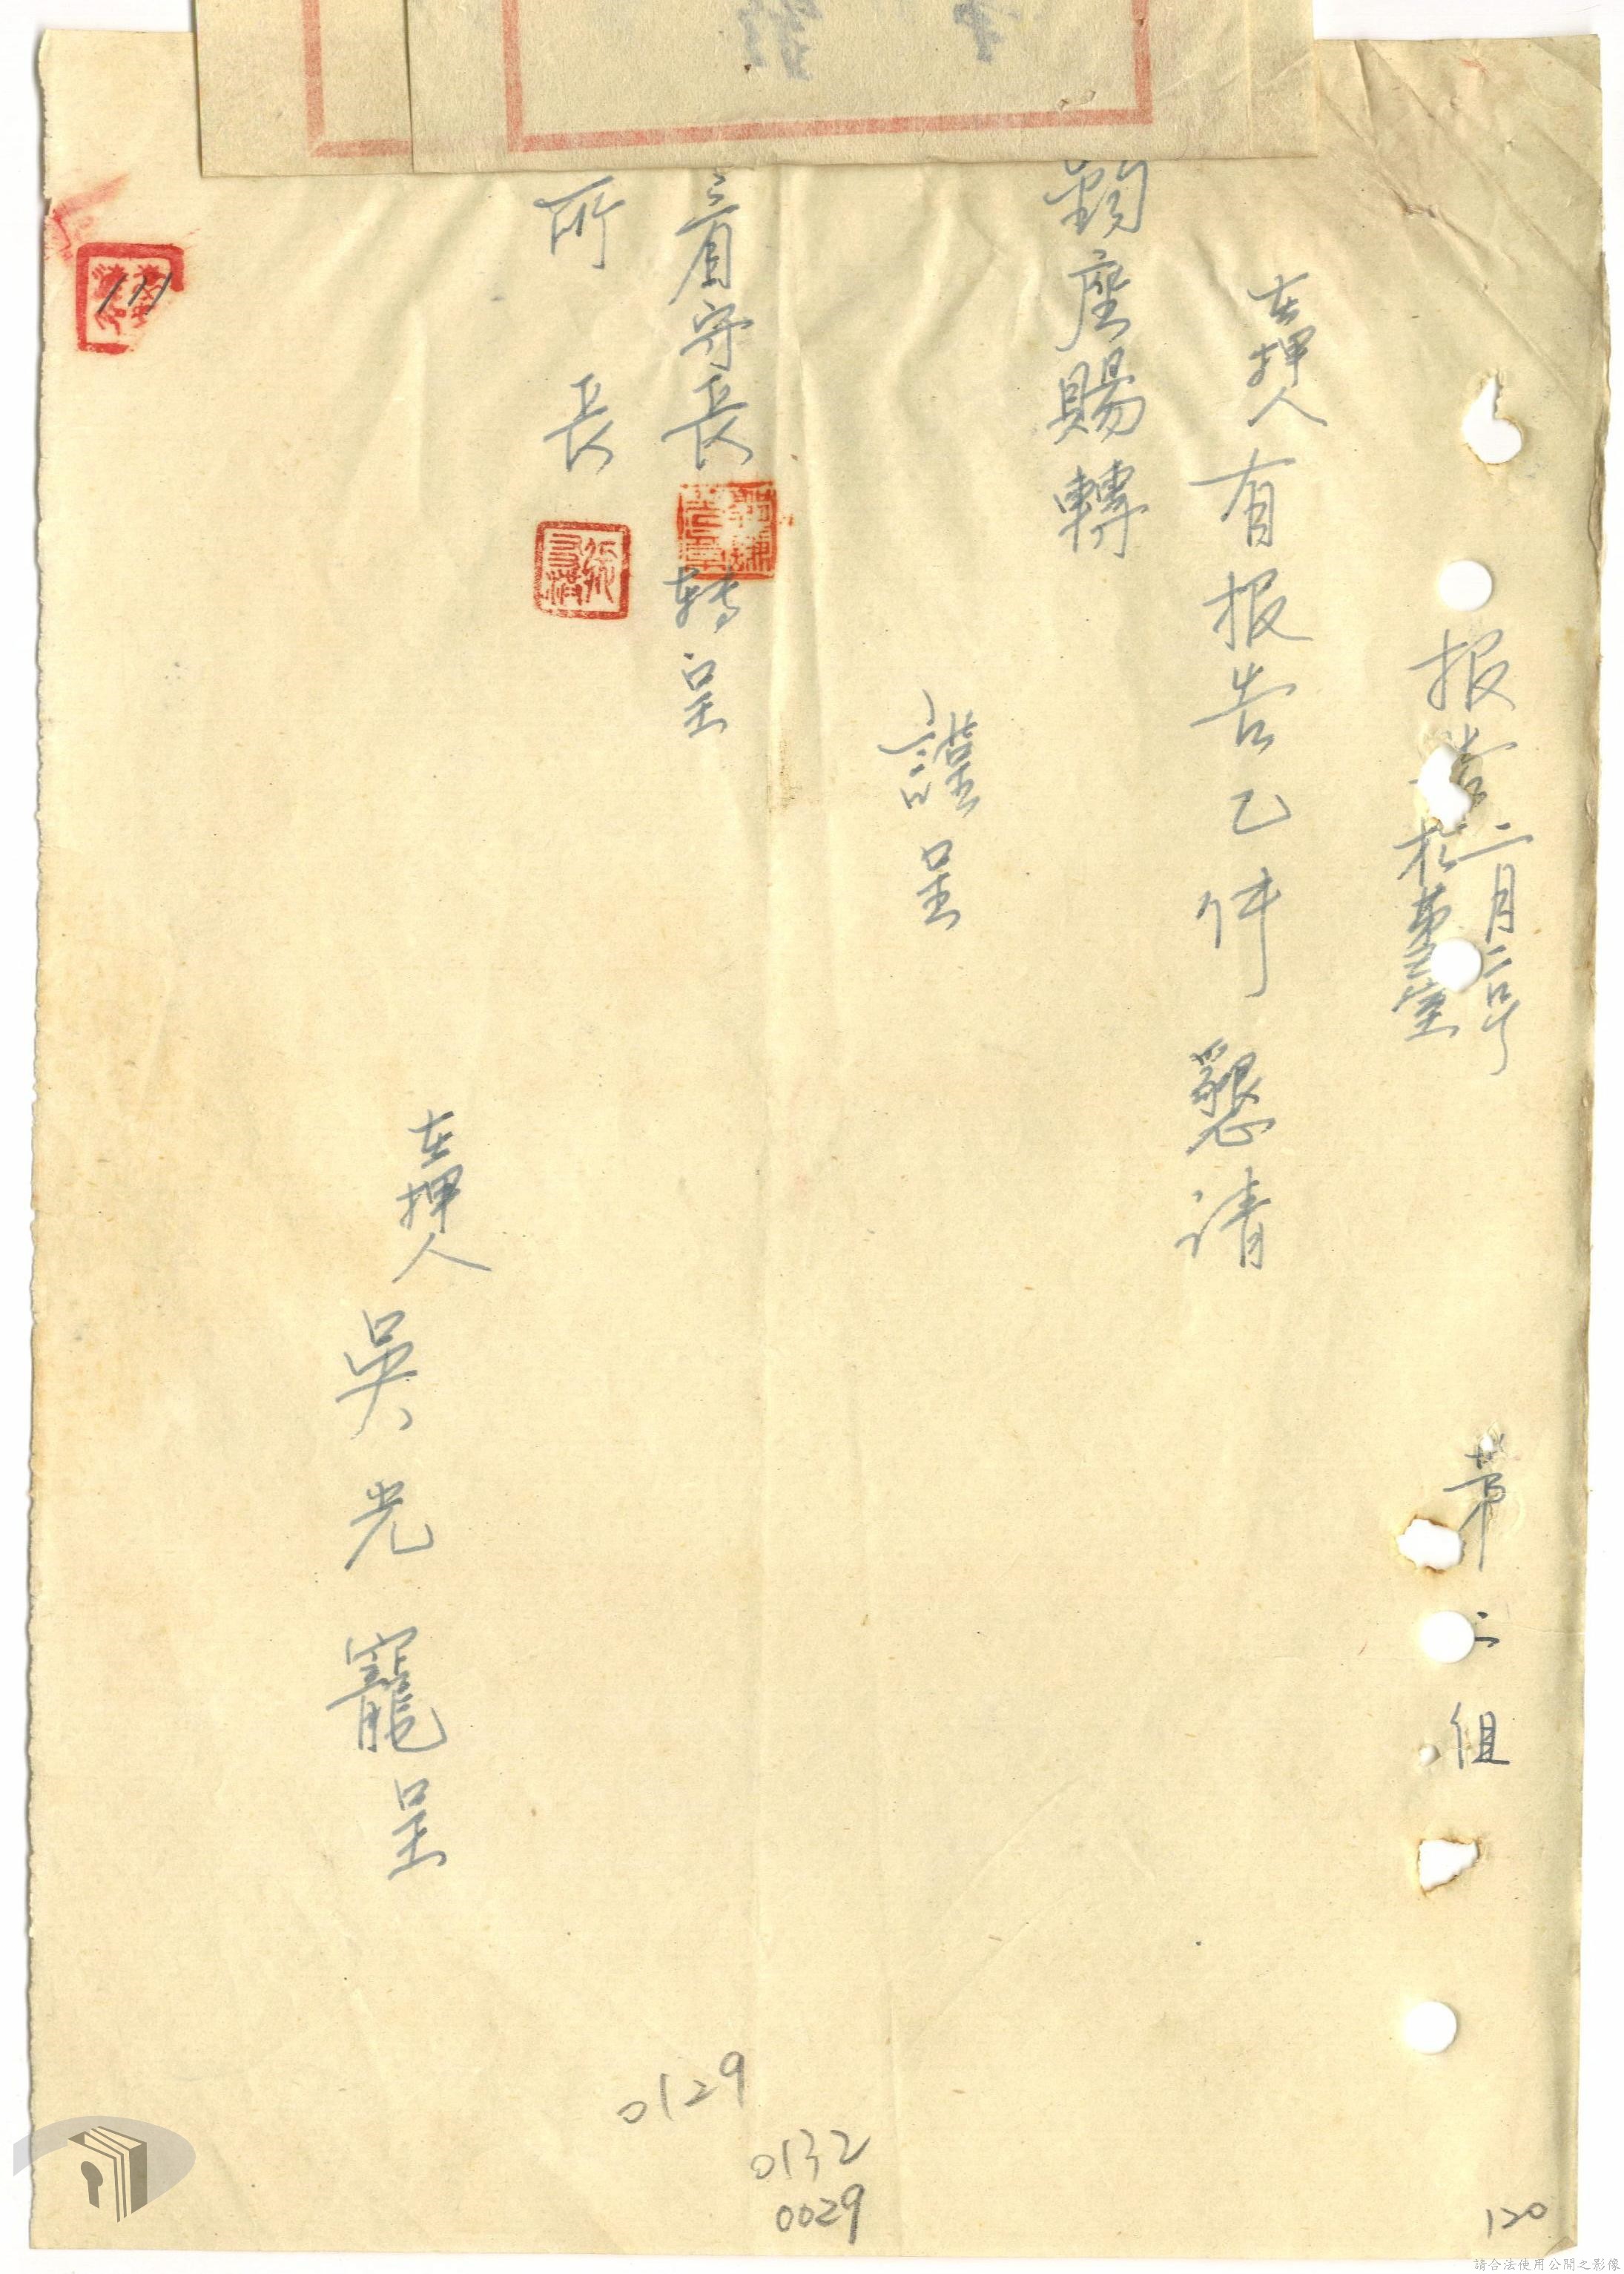 报告
二月二
於第
室
在押人有报告乙件懇请
鈞座賜轉
謹呈
看守長转呈
所長
在押人吳光寵呈
第二组
0129
0132
0029
120
請合法使用公開之影像